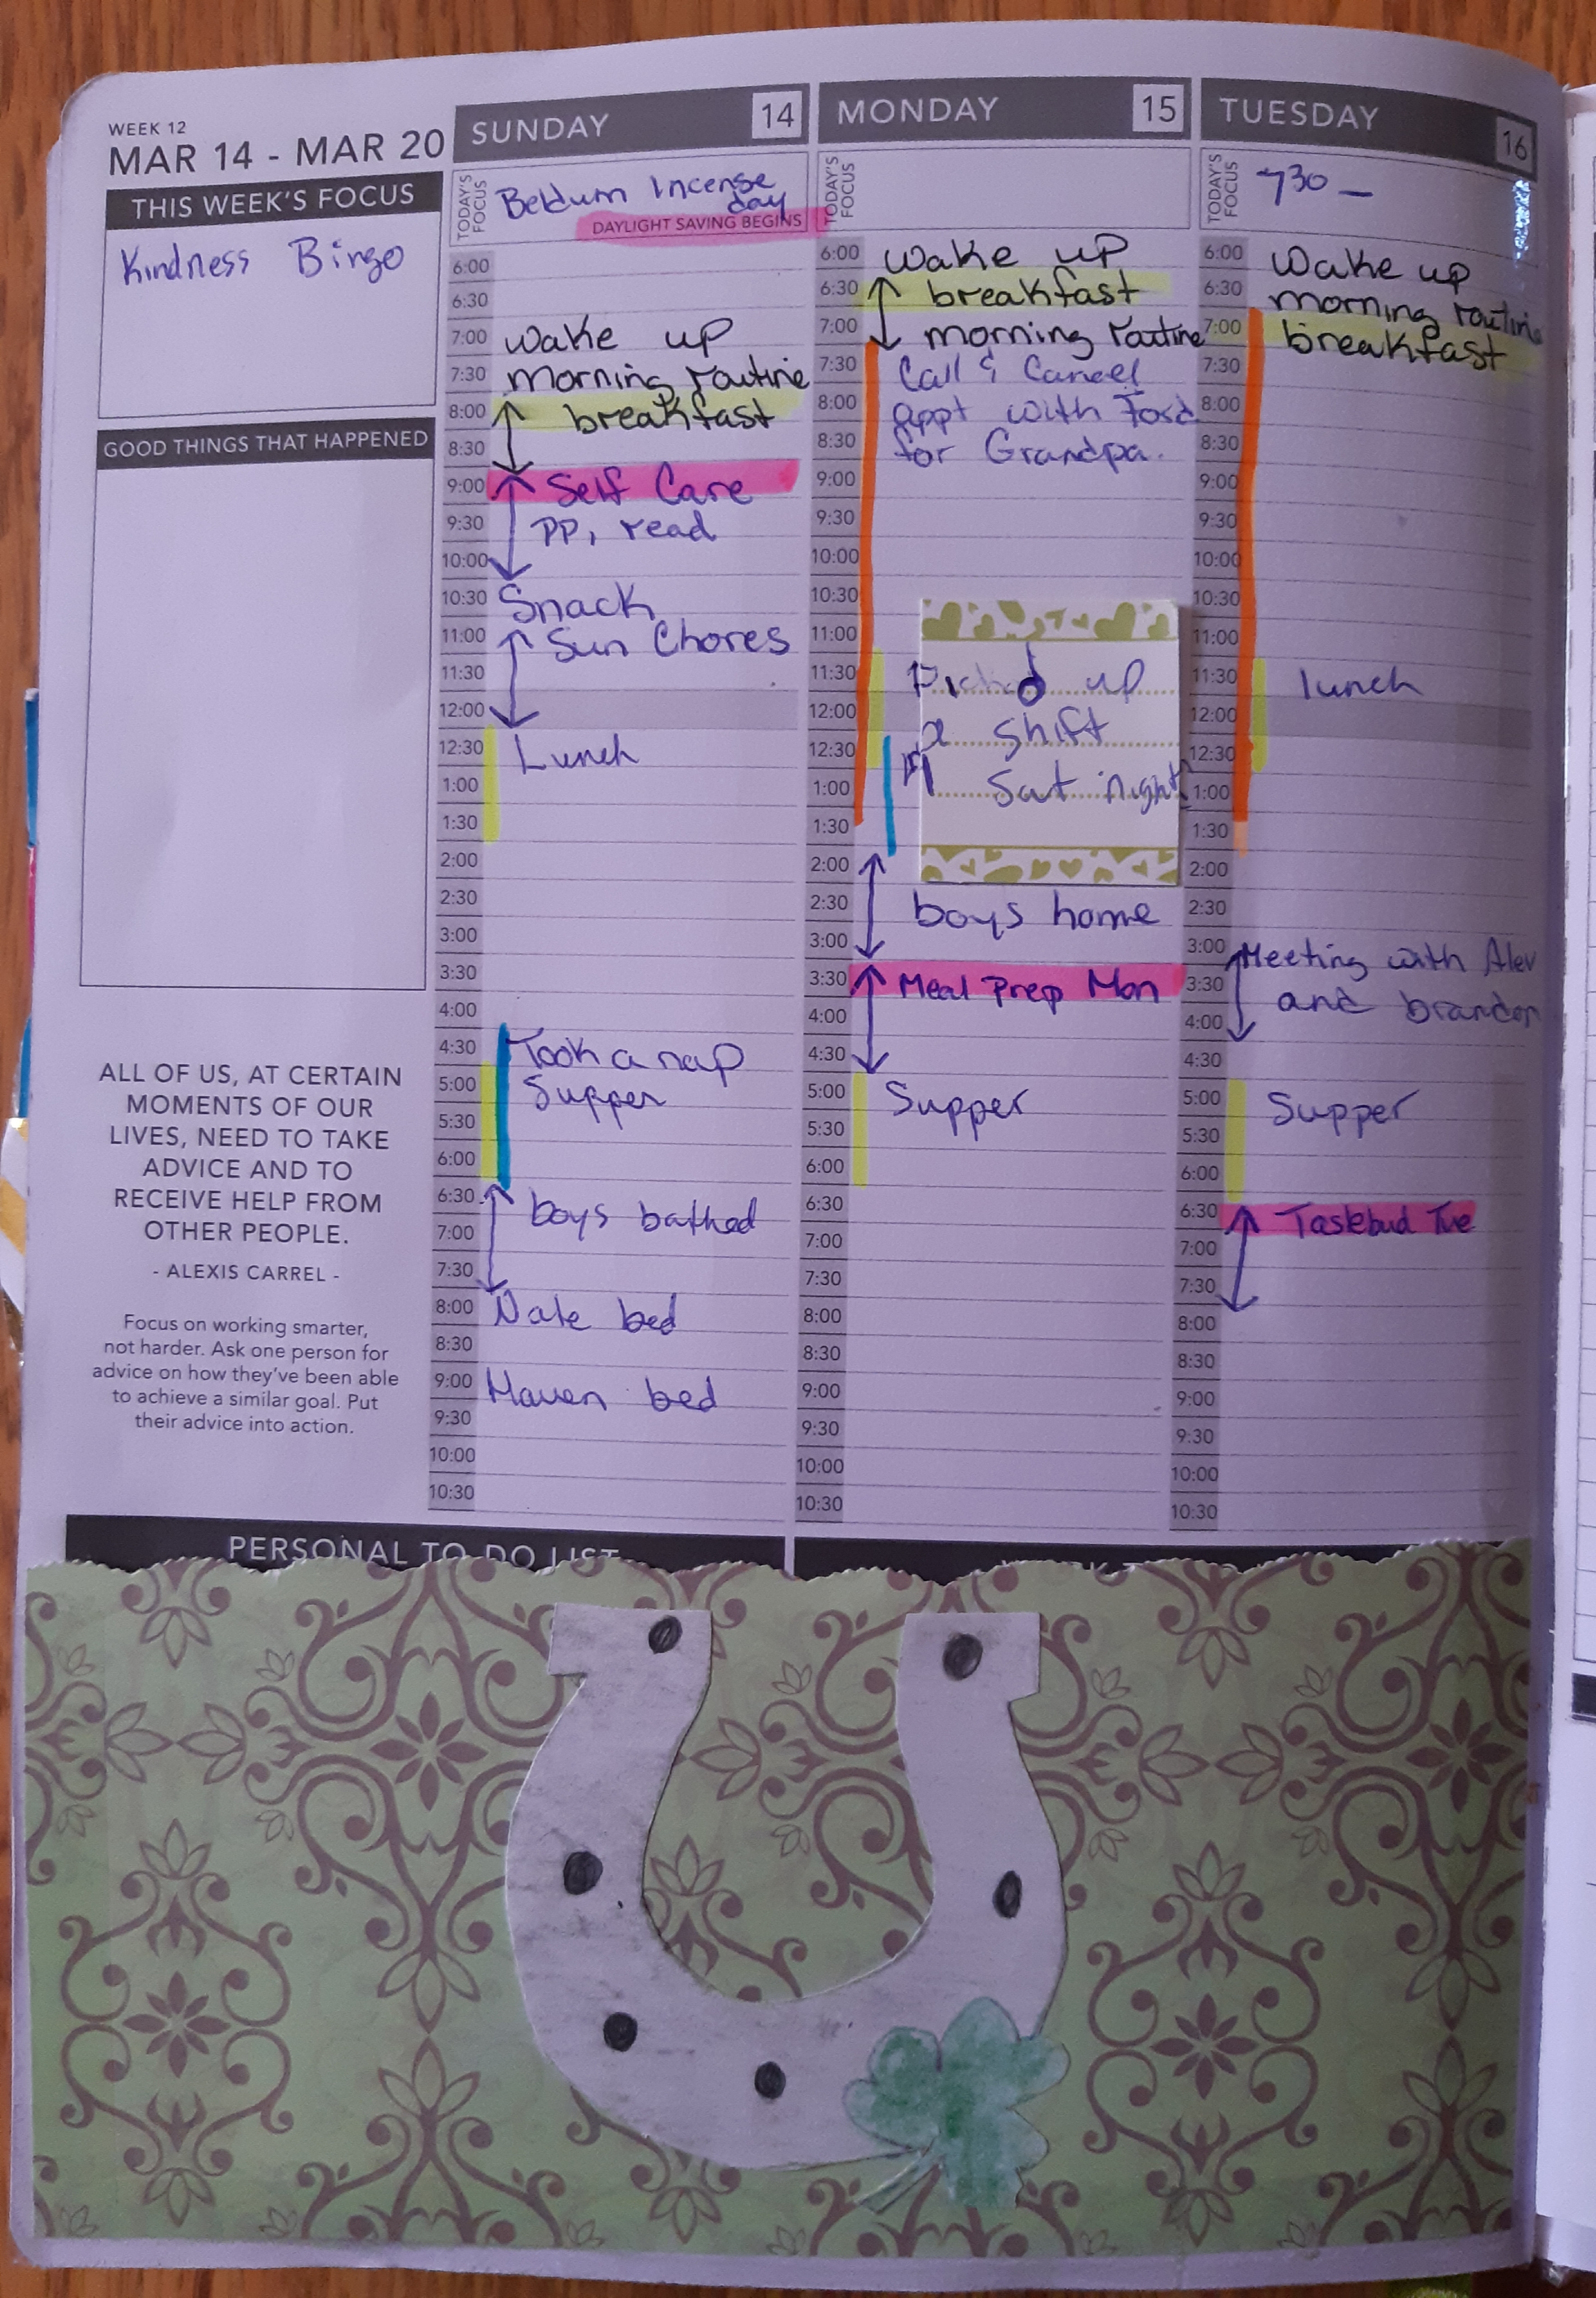 WEEK 12
MAR 14 - MAR 20
THIS WEEK'S FOCUS
Kindness Bingo
GOOD THINGS THAT HAPPENED
ALL OF US, AT CERTAIN
MOMENTS OF OUR
LIVES, NEED TO TAKE
ADVICE AND TO
RECEIVE HELP FROM
OTHER PEOPLE.
- ALEXIS CARREL -
Focus on working smarter,
not harder. Ask one person for
advice on how they've been able
to achieve a similar goal. Put
their advice into action.
SUNDAY 14
TODAY'S
FOCUS
Beldum Incense
day
DAYLIGHT SAVING BEGINS
6:00
6:30
7:00 wake up
7:30 morning routine
8:00 breakfast
8:30
9:00 Self Care
9:30 PP, read
10:00
10:30 Snack
11:00 Sun Chores
11:30
12:00
12:30 Lunch
1:00
1:30
2:00
2:30
3:00
3:30
4:00
4:30 Took a nap
5:00 Supper
5:30
6:00
6:30 boys bathed
7:00
7:30
8:00 Nate bed
8:30
9:00 Haven bed
9:30
10:00
10:30
MONDAY 15
TODAY'S
FOCUS
6:00 wake up
6:30 breakfast
7:00 morning routine
7:30 Call & Cancel
8:00 appt with
8:30 for Grandpa.
9:00
9:30
10:00
10:30
11:00
11:30 Picked up
12:00 a shift
12:30 Sat night
1:00
1:30
2:00
2:30 boys home
3:00
3:30 Meal Prep Mon
4:00
4:30
5:00 Supper
5:30
6:00
6:30
7:00
7:30
8:00
8:30
9:00
9:30
10:00
10:30
TUESDAY 16
TODAY'S
FOCUS
730 -
6:00 Wake up
6:30 morning routine
7:00 breakfast
7:30
8:00
8:30
9:00
9:30
10:00
10:30
11:00
11:30 lunch
12:00
12:30
1:00
1:30
2:00
2:30
3:00 Meeting with
3:30 and brandon
4:00
4:30
5:00 Supper
5:30
6:00
6:30 Tastebud Tue
7:00
7:30
8:00
8:30
9:00
9:30
10:00
10:30
PERSONAL TO-DO LIST